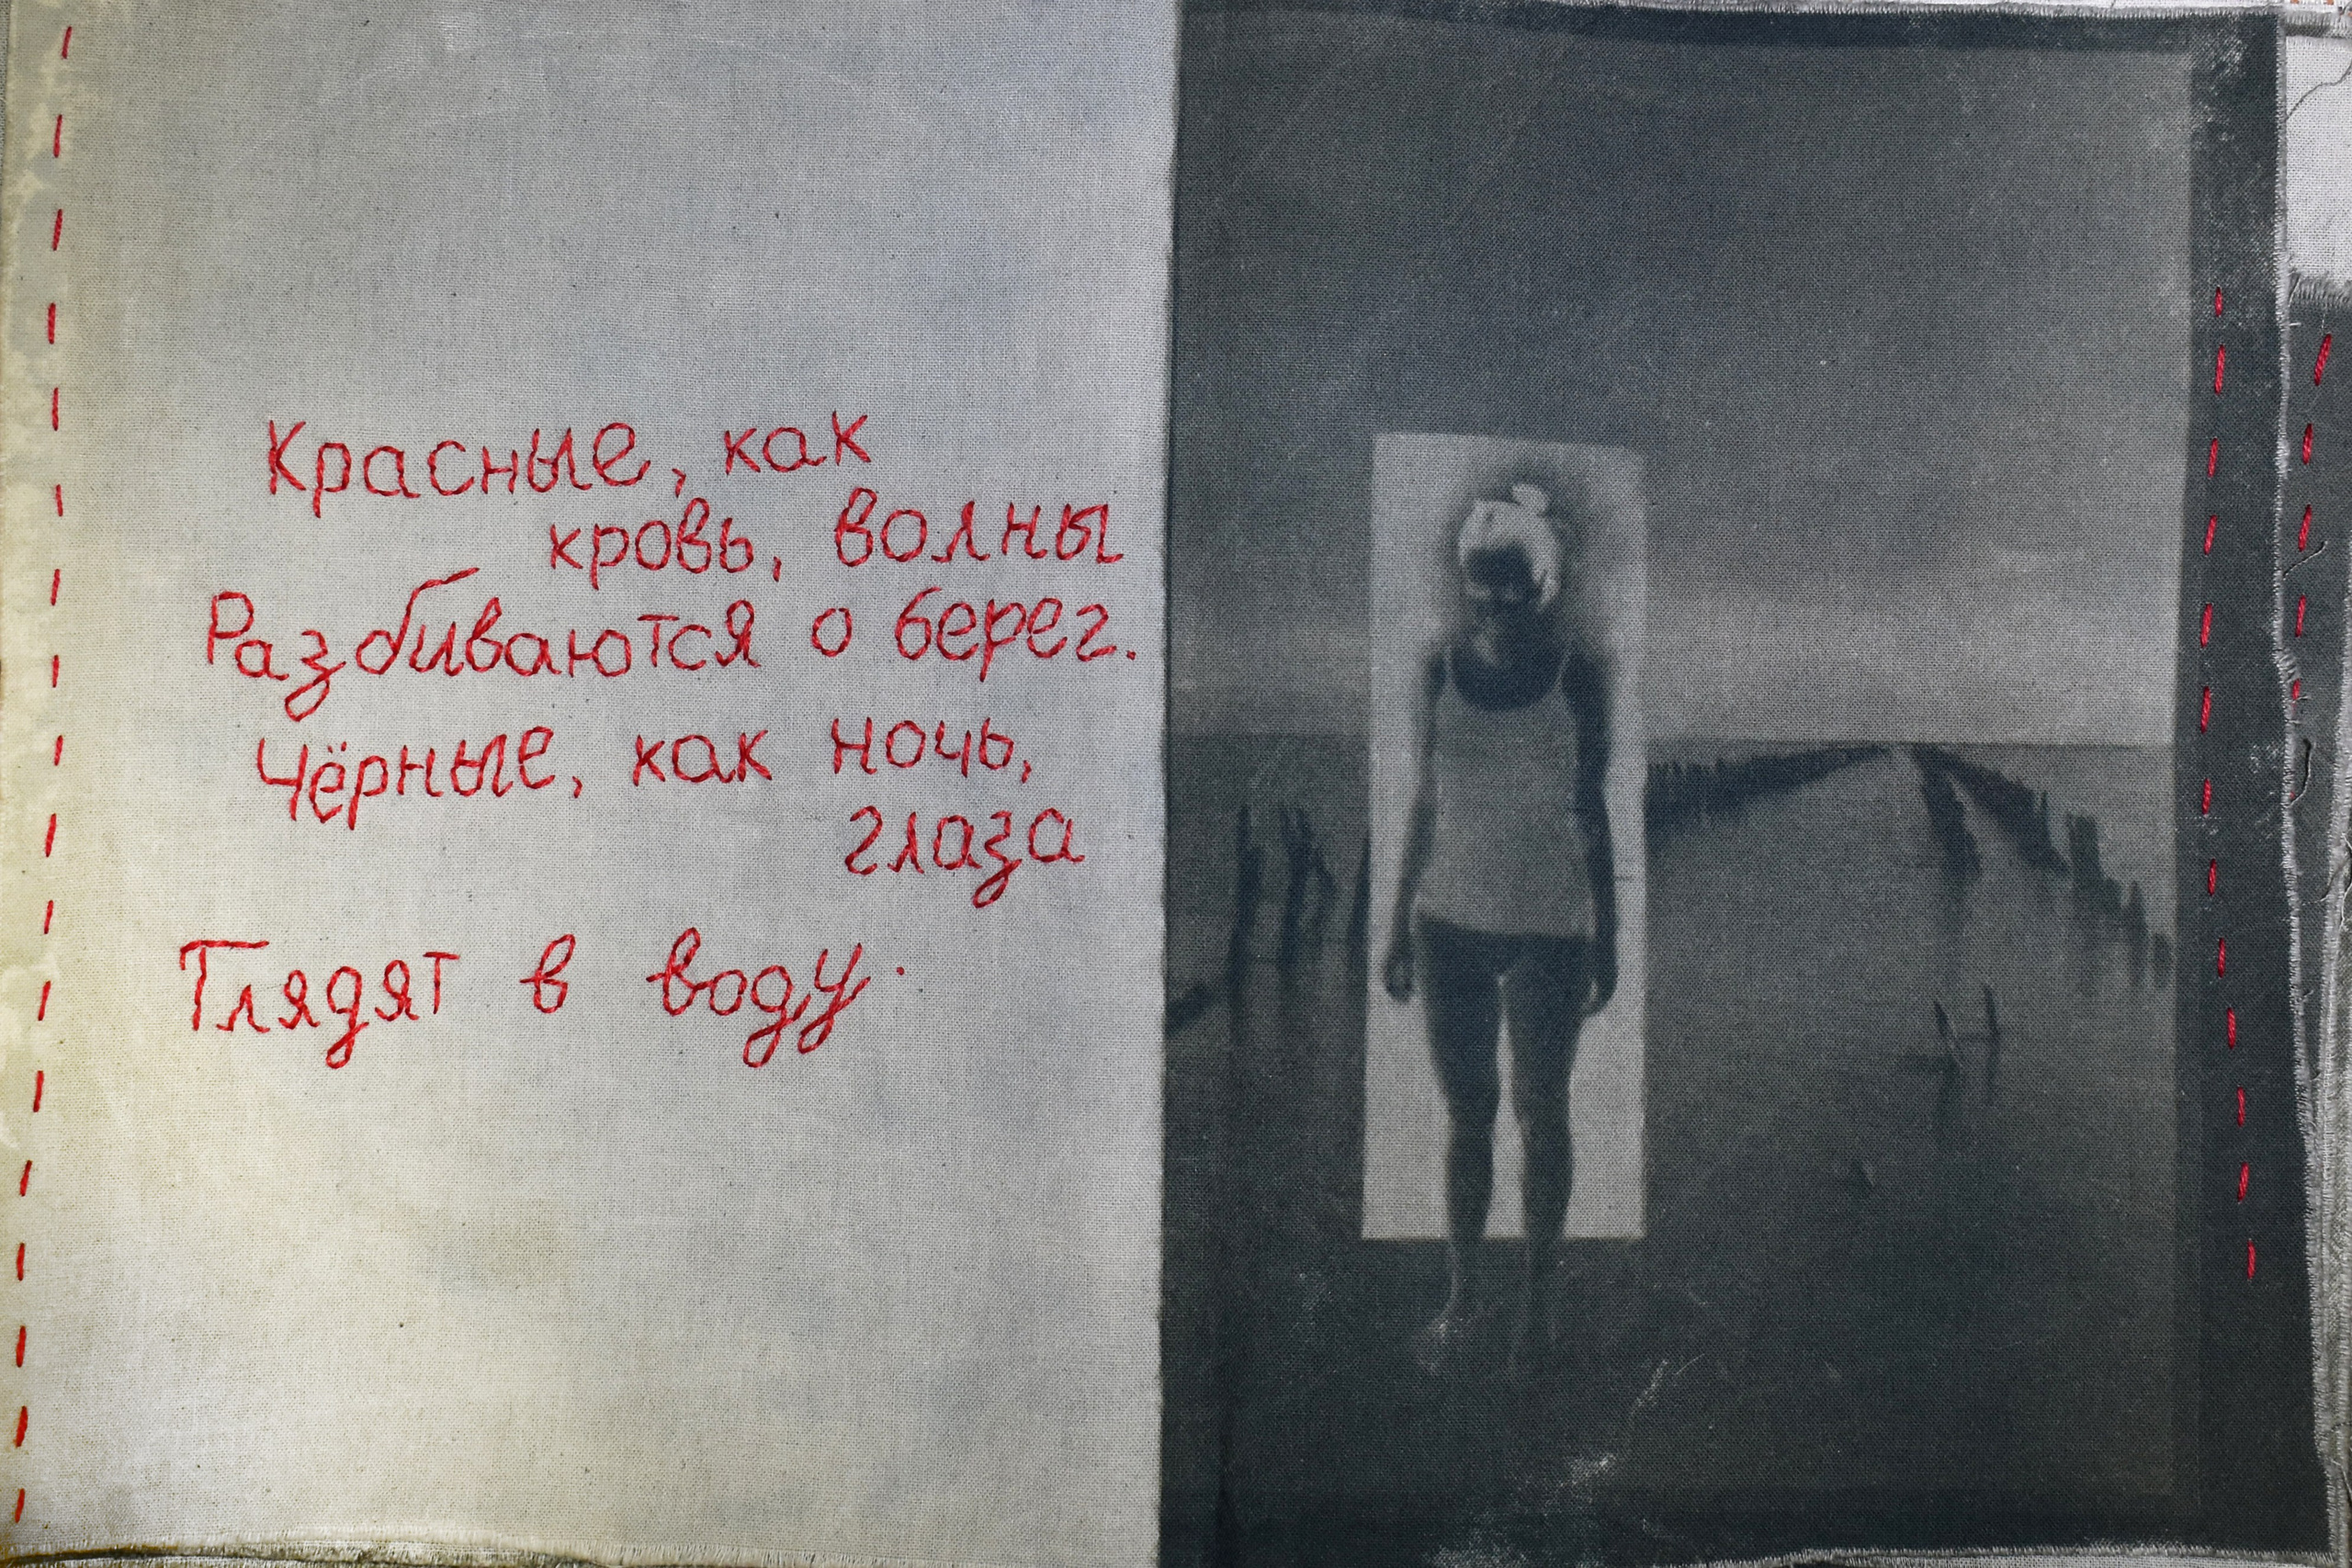 Красные, как
кровь, волны
Разбиваются о берег.
Чёрные, как ночь,
глаза
Глядят в воду.